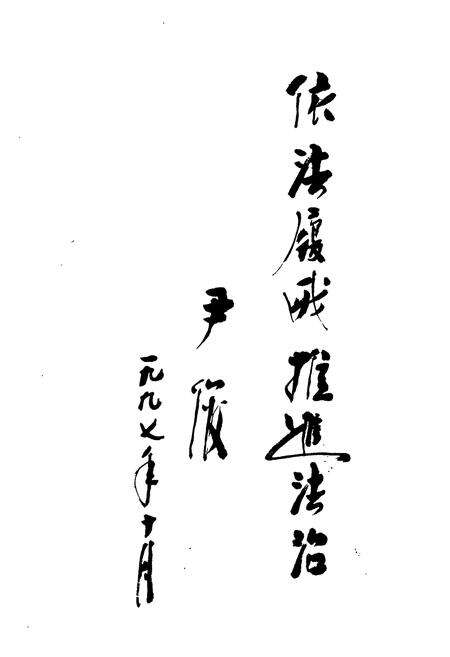 依法履职推進法治
尹俊
一九九七年十月